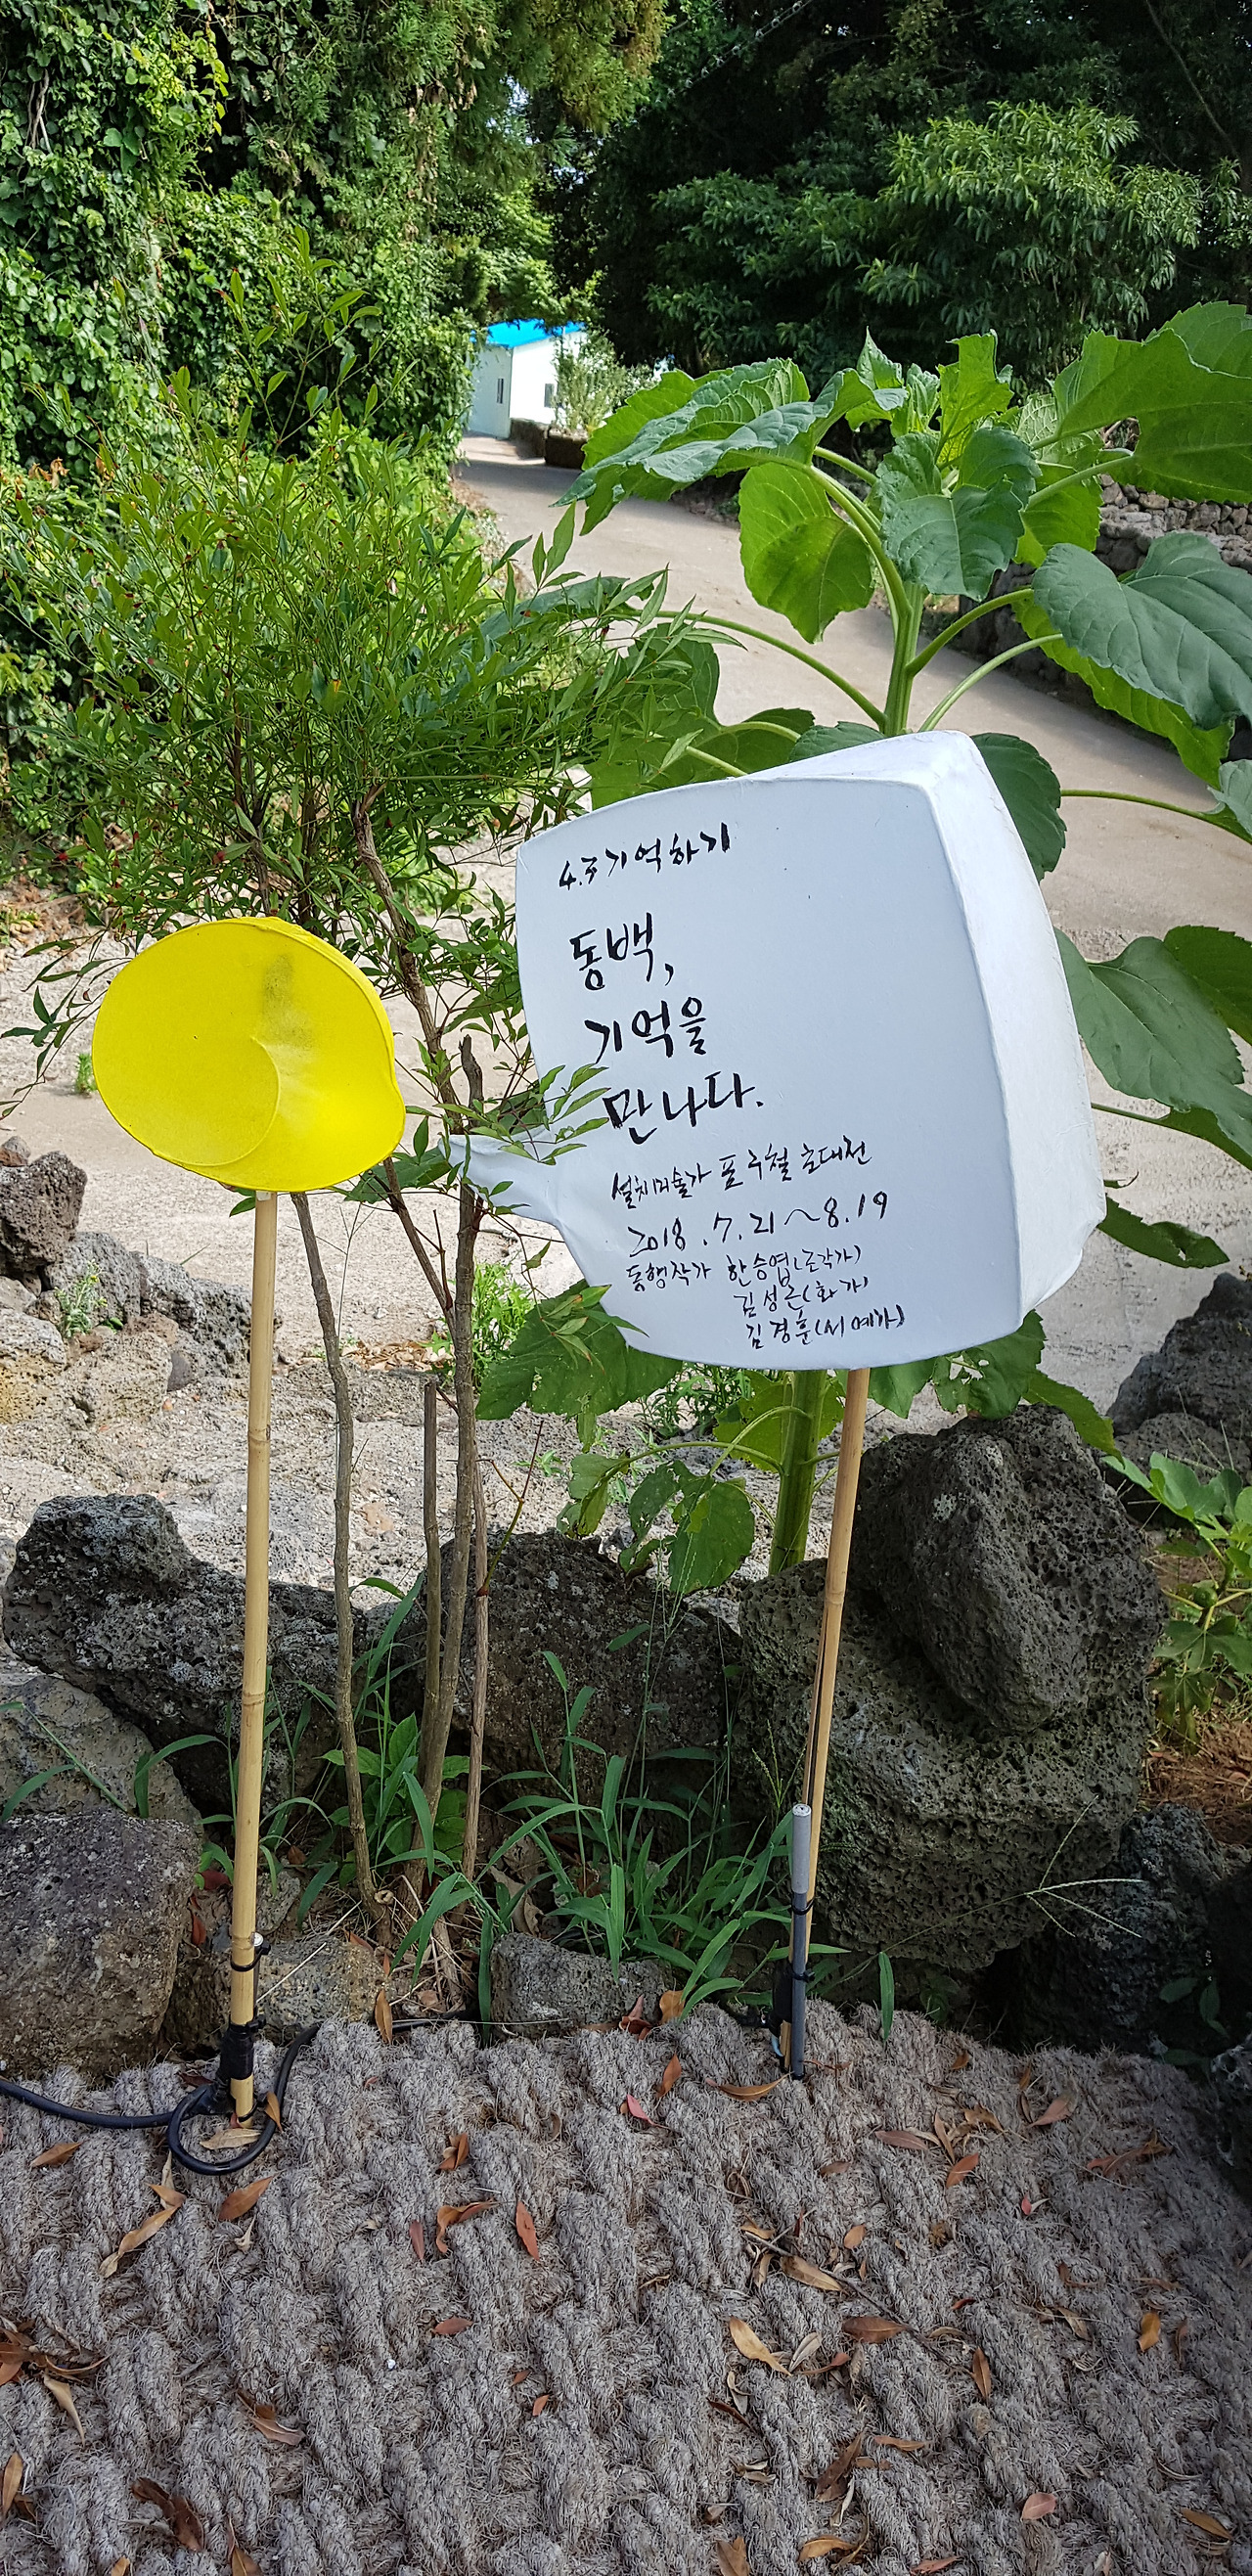 4.3 기억하기
동백,
기억을
만나다.
설치미술가 표주철 초대전
2018.7.21~8.19
동행작가 한승엽(조각가)
김성은(화가)
김경훈(서예가)